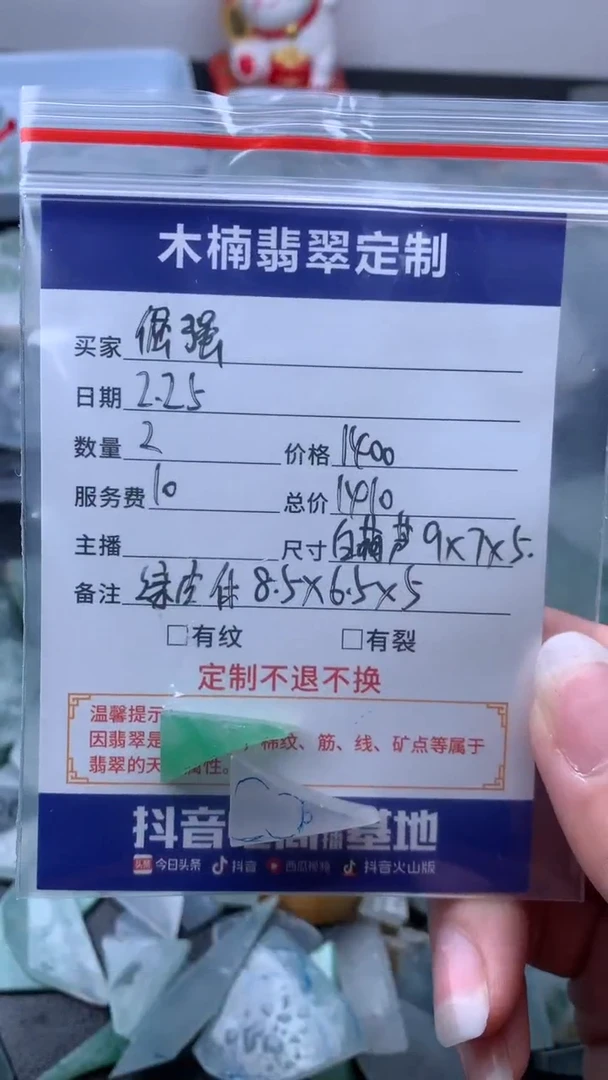 木楠翡翠定制
买家 倔强
日期 2.25
数量 2 价格 1400
服务费 10 总价 1410
主播 尺寸 白葫芦 9×7×5.
备注 绿皮件 8.5×6.5×5
□有纹 □有裂
定制不退不换
温馨提示
因翡翠是 棉纹、筋、线、矿点等属于
翡翠的天 属性。
抖音 播基地
头条 今日头条 抖音 西瓜视频 抖音火山版